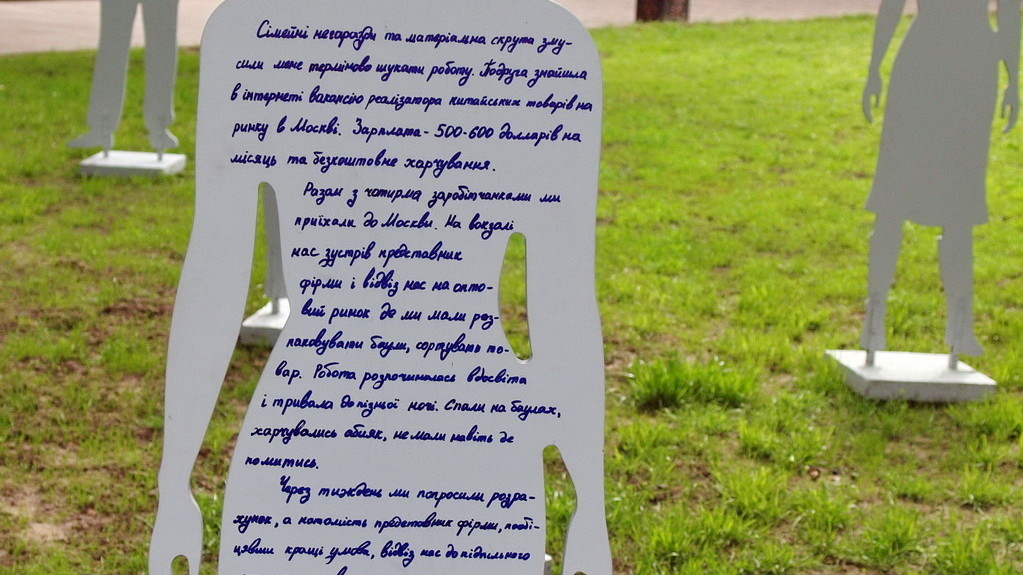 Сімейні негаразди та матеріальна скрута зму-
сили мене терміново шукати роботу. Подруга знайшла
в інтернеті вакансію реалізатора китайських товарів на
ринку в Москві. Зарплата - 500-600 долларів на
місяць та безкоштовне харчування.
Разом з чотирма заробітчанками ми
приїхали до Москви. На вокзалі
нас зустрів представник
фірми і відвіз нас на опто-
вий ринок де ми мали роз-
паковувати баули, сортувать то-
вар. Робота розпочиналась вдосвіта
і тривала допізньої ночі. Спали на баулах,
харчувались абияк, не мали навіть де
помитись.
Через тиждень ми попросили розра-
хунок, а натомість предстовник фірми, пообі-
цявши кращі умова, відвіз нас до підпільного